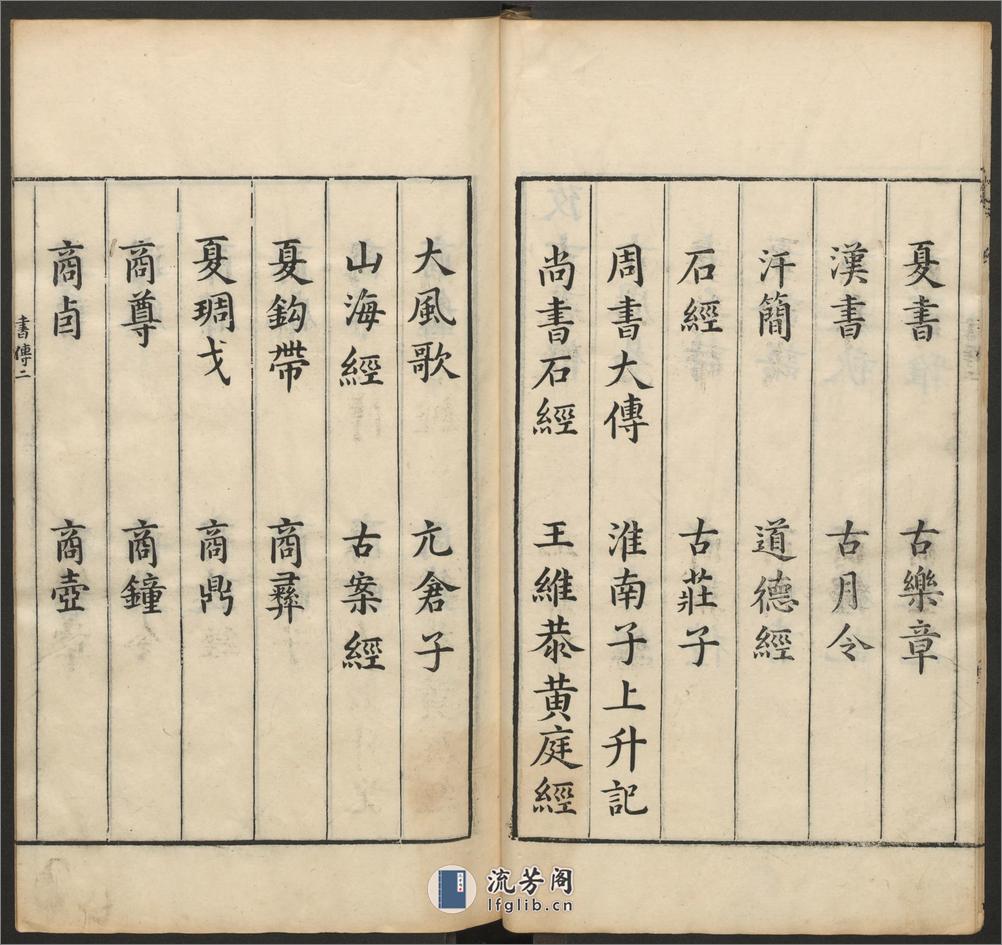 夏書 古樂章
漢書 古月令
汗簡 道德經
石經 古莊子
周書大傳 淮南子上升記
尚書石經 王維恭黄庭經
大風歌 亢倉子
山海經 古案經
夏鈎帶 商彝
夏琱戈 商鼎
商尊 商鐘
商卣 商壺
書傳二
流芳阁
lfglib.cn